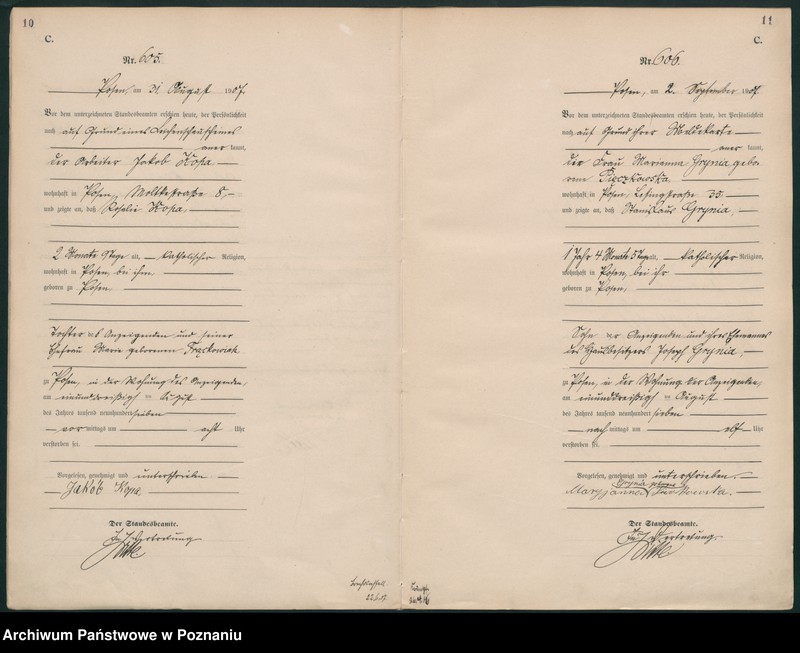 10
C.
Nr. 605.
Posen, am 31. August 1907.
Vor dem unterzeichneten Standesbeamten erschien heute, der Persönlichkeit
nach auf Grund eines Leichenschauscheines
aner kannt,
der Arbeiter Jakob Kopa
wohnhaft in Posen, Moltkestraße 8,
und zeigte an, daß Rosalie Kopa,
2 Monate Tage alt, katholischer Religion,
wohnhaft in Posen, bei ihm
geboren zu Posen,
Tochter des Anzeigenden und seiner
Ehefrau Marie geborenen Frąckowiak
zu Posen, in der Wohnung des Anzeigenden,
am einunddreißigsten August
des Jahres tausend neunhundert sieben
vor mittags um acht Uhr
verstorben sei.
Vorgelesen, genehmigt und unterschrieben
Jakób Kopa
Der Standesbeamte.
In Vertretung
11
C.
Nr. 606.
Posen, am 2. September 1907.
Vor dem unterzeichneten Standesbeamten erschien heute, der Persönlichkeit
nach auf Grund ihrer Meldekarte
aner kannt,
der Frau Marianna Grynia gebo
rene
wohnhaft in Posen, straße 35
und zeigte an, daß Stanislaus Grynia,
1 Jahr 4 Monate 5 Tage alt, katholischer Religion,
wohnhaft in Posen, bei ihr
geboren zu Posen,
Sohn der Anzeigenden und ihres Ehemannes
des Hausbesitzers Joseph Grynia,
zu Posen, in der Wohnung der Anzeigenden,
am einunddreißigsten August
des Jahres tausend neunhundert sieben
nach mittags um elf Uhr
verstorben sei.
Vorgelesen, genehmigt und unterschrieben
Grynia geborene
Maryjanna
Der Standesbeamte.
In Vertretung
Archiwum Państwowe w Poznaniu